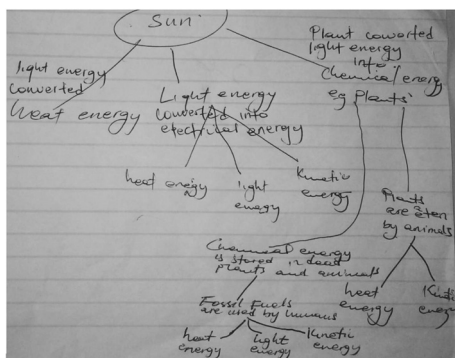 Sun
light energy
converted
heat energy
Light energy
converted into
electrical energy
Plant converted
light energy
into
Chemical energy
eg plants
heat energy
light
energy
Kinetic
energy
Plants
are eten
by animals
Chemical energy
is stored in dead
plants and animals
heat
energy
Kinetic
energy
Fossil Fuels
are used by humans
heat
energy
light
energy
Kinetic
energy